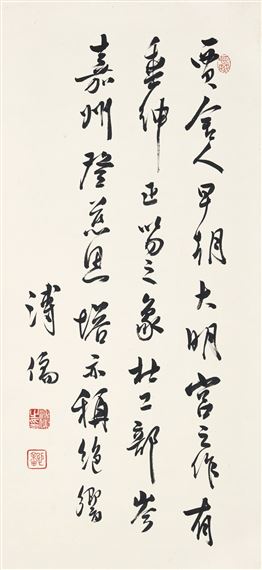 賈舍人早朝大明宮之作有
垂紳正笏之象杜工部岑
嘉州登慈恩塔亦稱絕響
溥儒